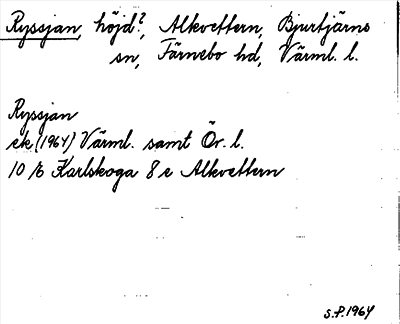 Ryssjan, höjd?, Alkvettern, Bjurtjärns
sn, Färnebo hd, Värml. l.
Ryssjan
ek (1964) Värml. samt Ör. l.
10 f6 Karlskoga 8 e Alkvettern
S.P. 1964